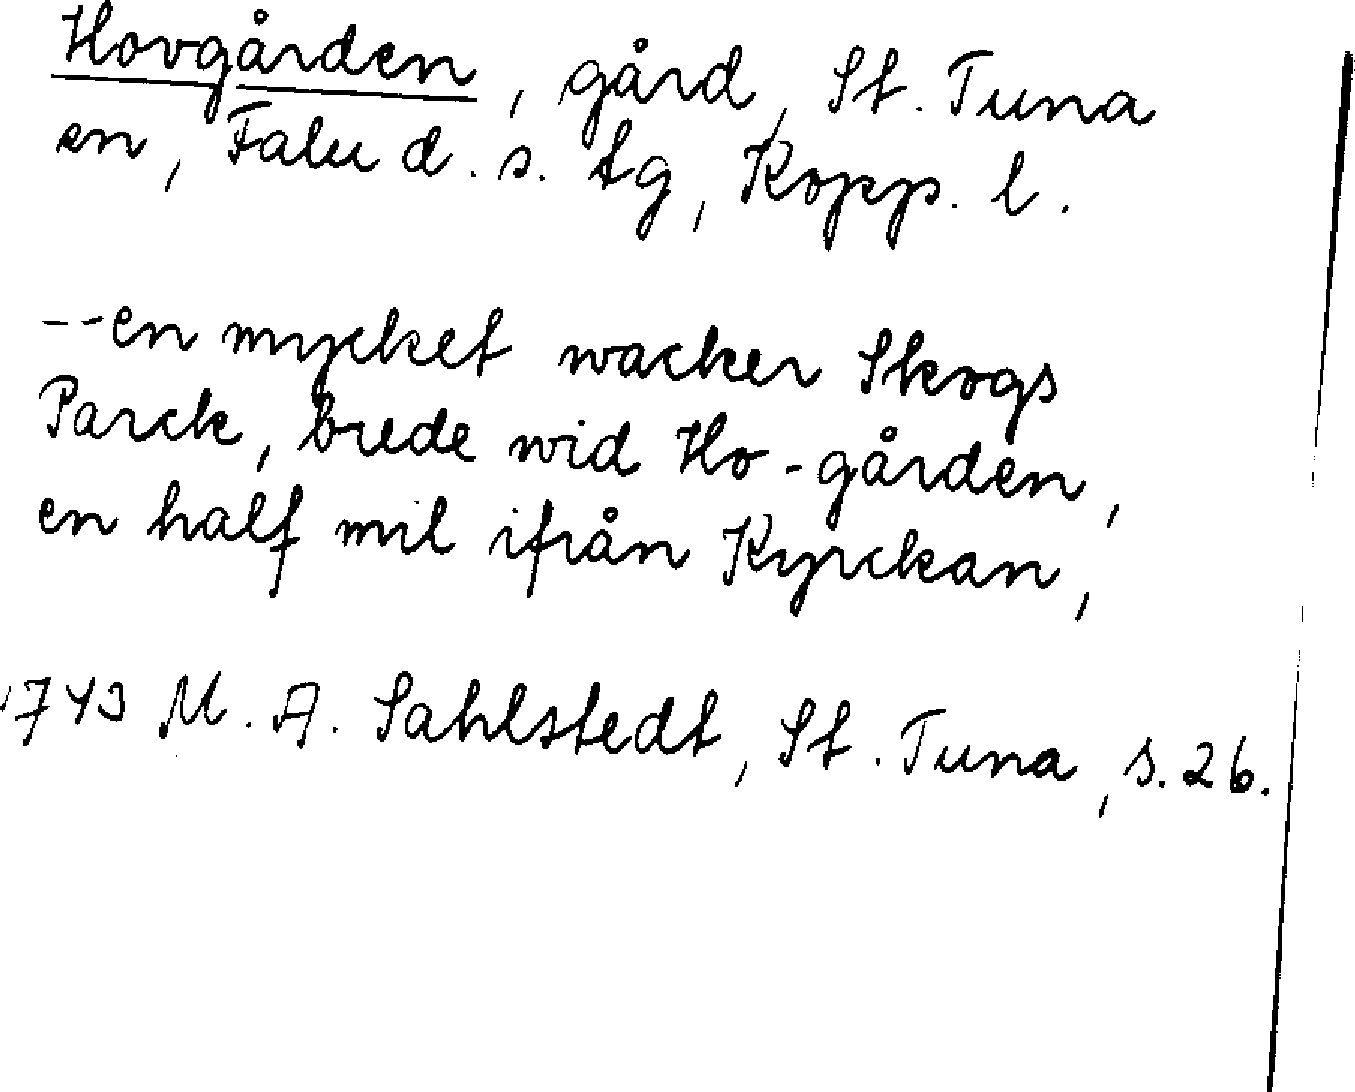 Hovgården, gård, St. Tuna
sn, Falu d. s. tg, Kopp. l.
--en mycket wacker Skogs
Parck, brede wid Ho-gården,
en half mil ifrån Kyrckan,
1743 M. A. Sahlstedt, St. Tuna, s. 26.